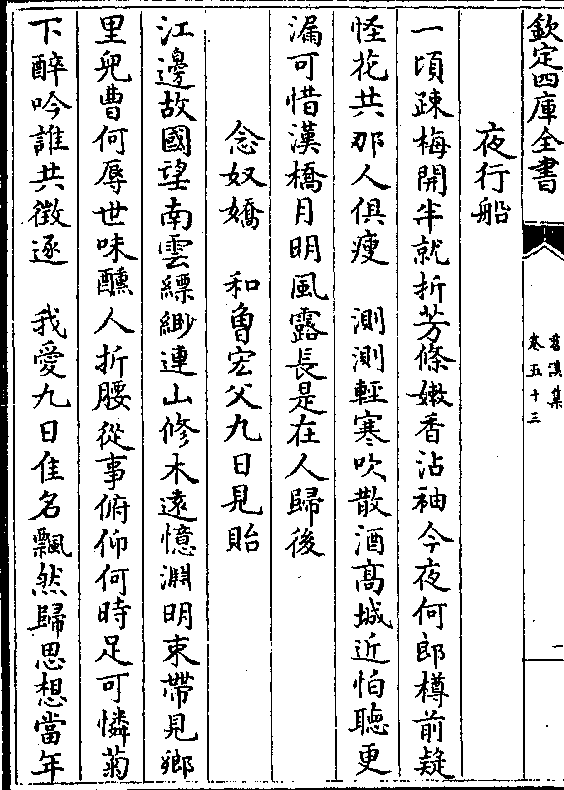 欽定四庫全書
苕溪集
卷五十三
一
夜行船
一頃疎梅開半就折芳條嫩香沾袖今夜何郎樽前疑
怪花共那人俱瘦　測測輕寒吹散酒高城近怕聽更
漏可惜溪橋月明風露長是在人歸後
念奴嬌　和魯宏父九日見貽
江邊故國望南雲縹緲連山修木遠憶淵明束帶見鄉
里兒曹何辱世味醺人折腰從事俯仰何時足可憐菊
下醉吟誰共徵逐　我愛九日佳名飄然歸思想當年